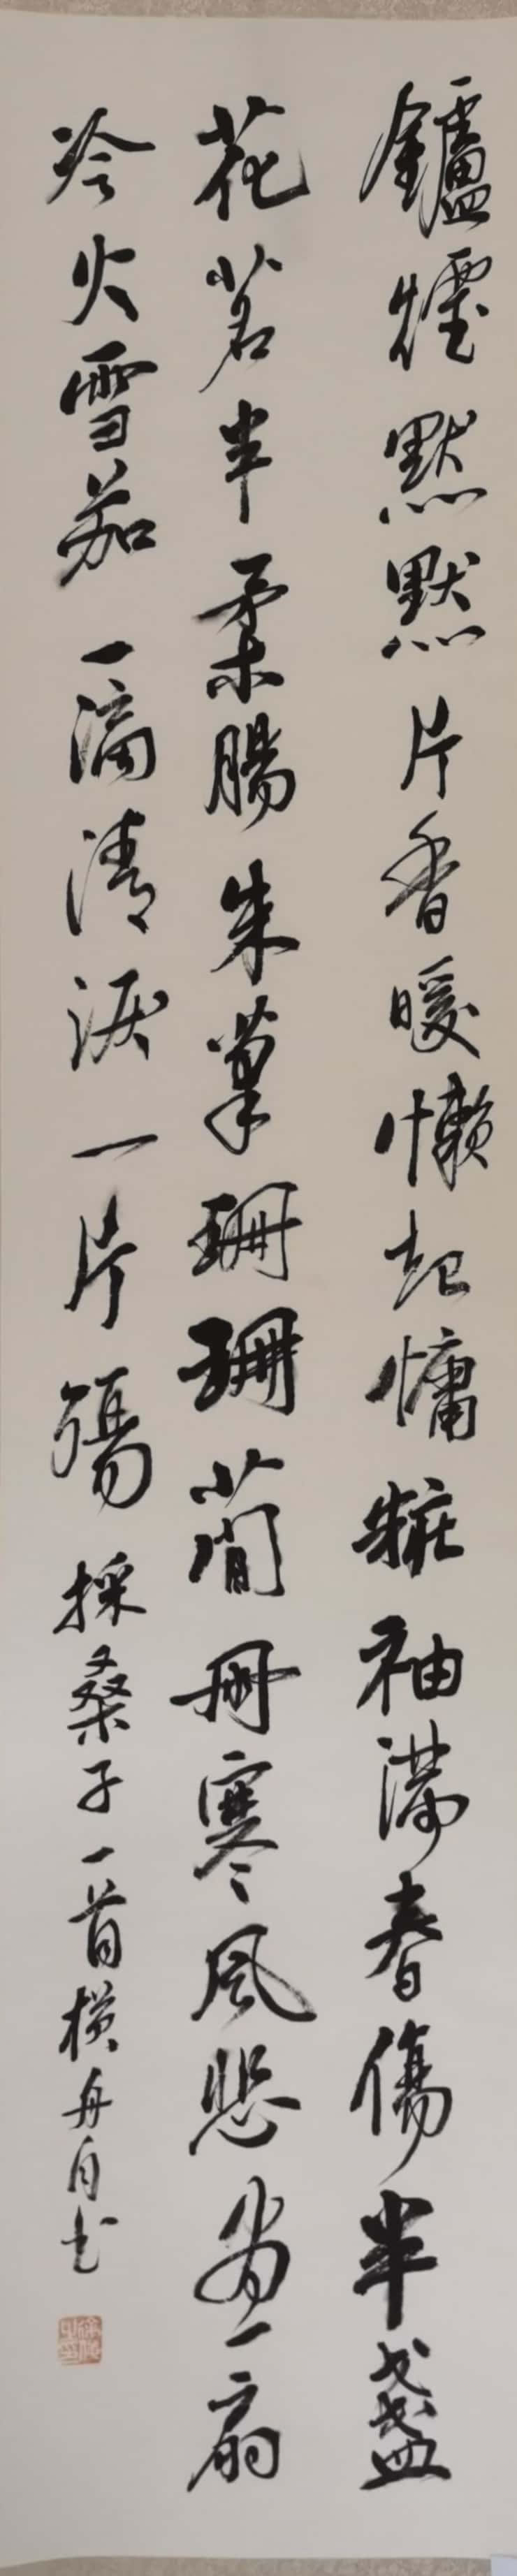 鑪煙默默片香暖懶起慵粧袖滿春傷半盞
花茗半柔腸朱菫珊珊蘭冊寒風悲畫一扇
冷火雪茄一滴清淚一片殤採桑子一首橫舟自書